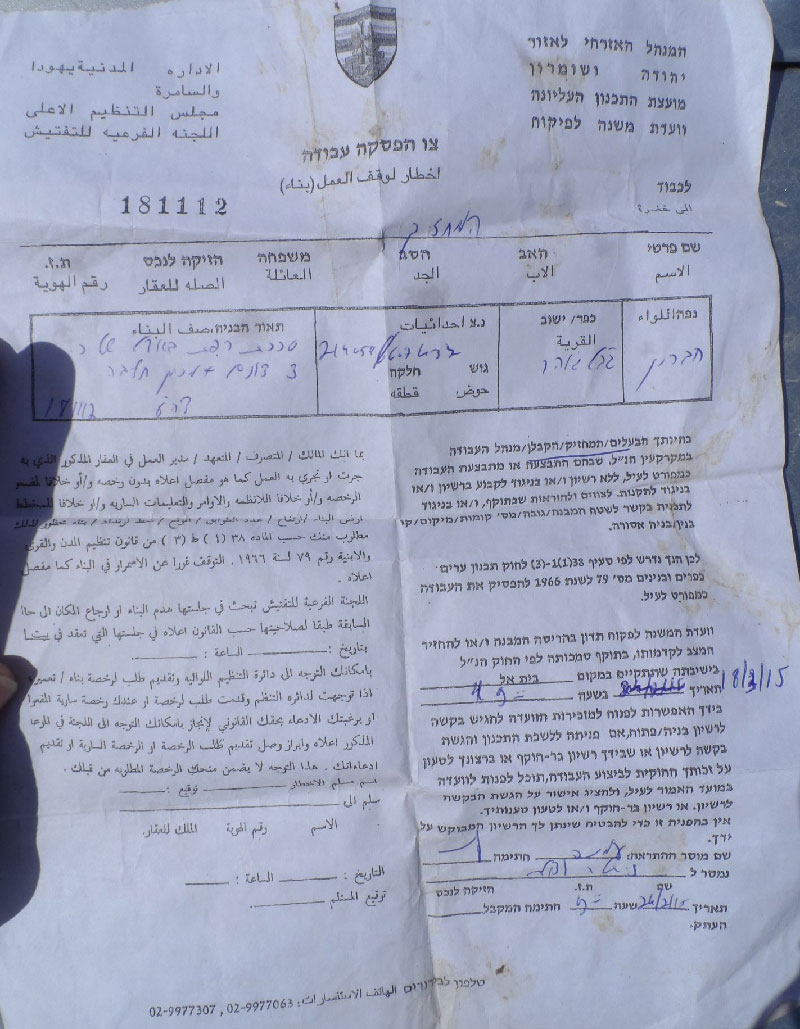 המנהל האזרחי לאזור
יהודה ושומרון
מועצת התכנון העליונה
וועדת משנה לפיקוח
الاداره المدنية يهودا
والسامرة
مجلس التنظيم الاعلى
اللجنة الفرعيه للتفتيش
צו הפסקה עבודה
اخطار لوقف العمل (بناء)
לכבוד
181112
המחזיק
שם פרטי האב הסב משפחה הזיקה לנכס ת.ז.
الاسم الاب الجد العائلة الصله للعقار رقم الهوية
נפה/اللواء כפר/ישוב נ.צ احداثيات תאור הבניה/صف البناء
القرية
חברון
גוש חלקה
حوض قطقه
181112
בהיותך הבעלים/המחזיק/הקבלן/מנהל העבודה
במקרקעין הנ"ל, שבהם התבצעה או מתבצעת העבודה
כמפורט לעיל, ללא רשיון ו/או בניגוד לקבוע ברשיון ו/או
בניגוד לתקנות, לצווים ולהוראות שבתוקף, ו/או בניגוד
לתכנית בקשר לשטח המבנה/גובה/מס' קומות/מיקום/קו
בנין/בניה אסורה.
לכן הנך נדרש לפי סעיף 38(1)-(3) לחוק תכנון ערים
כפרים ובנינים מס' 79 לשנת 1966 להפסיק את העבודה
כמפורט לעיל.
וועדת המשנה לפקוח תדון בהריסת המבנה ו/או להחזיר
המצב לקדמותו, בתוקף סמכותה לפי החוק הנ"ל
בישיבתה שתתקיים במקום בית אל
תאריך 18/3/15 בשעה
בידך האפשרות לפנות למזכירות הוועדה להגיש בקשה
לרשיון בניה/פתוח, אם פניתה ללשכת התכנון והגשת
בקשה לרשיון או שבידך רשיון בר-תוקף או ברצונך לטעון
על זכותך החוקית לביצוע העבודה, תוכל לפנות לוועדה
במועד האמור לעיל, ולהציג אישור על הגשת הבקשה
לרשיון, או רשיון בר-תוקף ו/או לטעון טענותיך.
אין בהפניה זו כדי להבטיח שינתן לך הרשיון המבוקש על
ידך.
שם מוסר ההתראה: חתימה
נמסר ל
שם ת.ז. הזיקה לנכס
תאריך שעה חתימה המקבל
העתק.
بما انك المالك / المتصرف / المتعهد / مدير العمل في العقار المذكور الذي به
جرت او تجري به العمل كما هو مفصل اعلاه بدون رخصه و/أو خلافا
الرخصه و/أو خلافا للانظمه والاوامر والتعليمات الساريه و/او خلافا للمخطط
مطلوب منك حسب الماده ٣٨ (١) ط (٣) من قانون تنظيم المدن والقرى
والابنية رقم ٧٩ لسنة ١٩٦٦ . التوقف فورا عن الاستمرار في البناء كما مفصل
اعلاه .
اللجنة الفرعية للتفتيش تبحث في جلستها هدم البناء او ارجاع المكان الى حاله
السابقة طبقا لصلاحيتها حسب القانون اعلاه في جلستها التي تعقد في
بتاريخ : الساعة :
بامكانك التوجه الى دائرة التنظيم اللوائيه وتقديم طلب لرخصة بناء / تعمير
اذا توجهت لدائره التنظم وقدمت طلب لرخصة او عندك رخصة سارية المفعول
او برغبتك الادعاء بحقك القانوني لإنجاز بامكانك التوجه الى اللجنة في الموعد
المذكور اعلاه وابراز وصل تقديم طلب الرخصة او الرخصة السارية او تقديم
ادعاءاتك . هذا التوجه لا يضمن منحك الرخصة المطلوبه من قبلك .
اسم مسلم الاخطار توقيع :
سلم الى
الاسم رقم الهوية المالك للعقار.
التاريخ : الساعة :
توقيع المستلم
טלפון לבירורים الهاتف الاستفسارات : 02-9977063 , 02-9977307